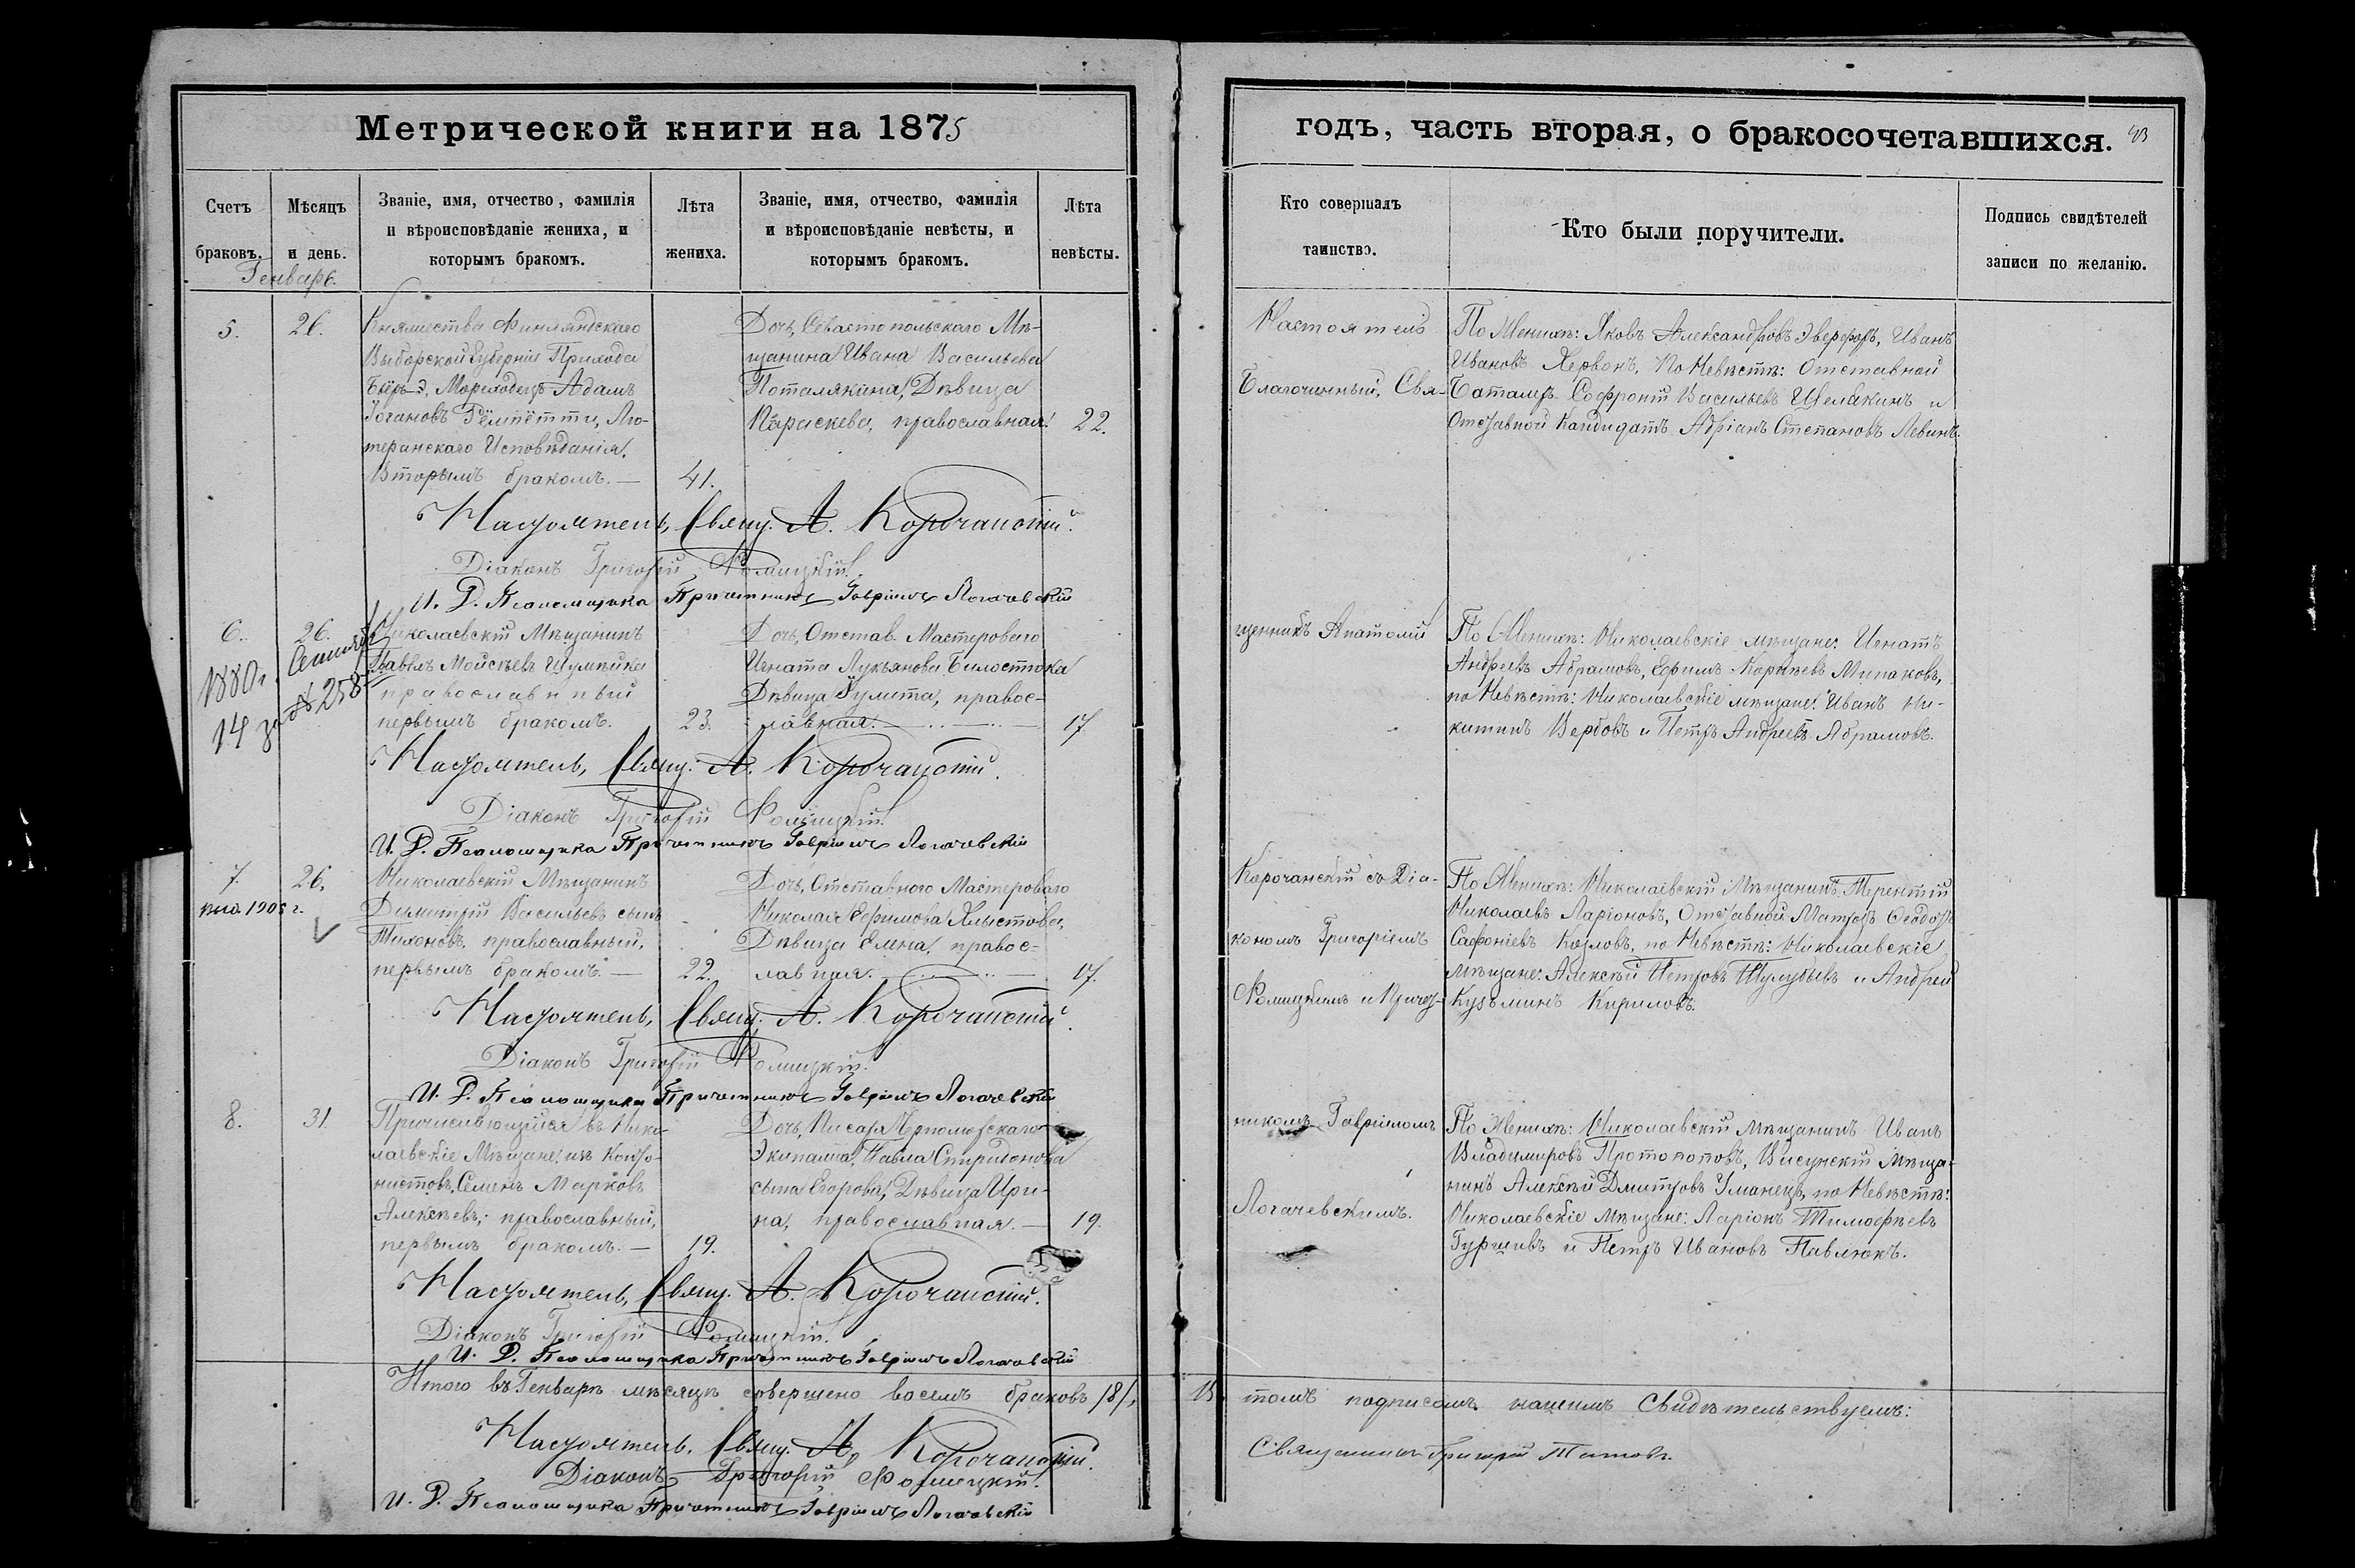 Метрической книги на 1875
годъ, часть вторая, о бракосочетавшихся.
Счетъ браковъ.
Мѣсяцъ и день.
Званіе, имя, отчество, фамилія
и вѣроисповѣданіе жениха, и
которымъ бракомъ.
Лѣта
жениха.
Званіе, имя, отчество, фамилія
и вѣроисповѣданіе невѣсты, и
которымъ бракомъ.
Лѣта
невѣсты.
Кто совершалъ
таинство.
Кто были поручители.
Подпись свидѣтелей
записи по желанію.
Генварь.
5.
26.
Княжества Финляндскаго
Выборской Губерніи Прихода
Мореходецъ Адамъ
Іогановъ Лю-
теранскаго Исповѣданія.
Вторымъ бракомъ.
41.
Дочь, Севастопольскаго Мѣ-
щанина Ивана Васильева
Поталякина, Дѣвица
Параскева, православная.
22.
Настоятель, Свящ. А. Корочанскій.
Діаконъ Григорій Фомицкій.
И. Д. Псаломщика Причетникъ Гавріилъ Логачевскій
6.
26.
1880 г.
14 за № 258
Николаевскій Мѣщанинъ
Павелъ Моисѣевъ Шумѣйка
православный
первымъ бракомъ.
23.
Дочь, Отстав. Мастероваго
Игната Лукьянова Билостока
Дѣвица Іулита, правос-
лавная.
17
Настоятель, Свящ. А. Корочанскій.
Діаконъ Григорій Фомицкій.
И. Д. Псаломщика Причетникъ Гавріилъ Логачевскій
7.
26.
1905 г.
Николаевскій Мѣщанинъ
Димитрій Васильевъ сынъ
Тихоновъ, православный,
первымъ бракомъ.
22.
Дочь, Отставного Мастероваго
Николая Ефимова Хлыстова,
Дѣвица Елена, правос-
лавная.
17.
Настоятель, Свящ. А. Корочанскій.
Діаконъ Григорій Фомицкій.
И. Д. Псаломщика Причетникъ Гавріилъ Логачевскій
8.
31.
Причисляющійся въ Нико-
лаевскіе Мѣщане, изъ Канто-
нистовъ, Семенъ Марковъ
Алексѣевъ, православный,
первымъ бракомъ.
19.
Дочь, Писаря Черноморскаго
Экипажа, Павла Спиридонова
сына Егорова, Дѣвица Ири-
на, православная.
19.
Настоятель, Свящ. А. Корочанскій.
Діаконъ Григорій Фомицкій.
И. Д. Псаломщика Причетникъ Гавріилъ Логачевскій
Итого въ Генварѣ мѣсяцѣ совершено восемь браковъ /8/,
Настоятель, Свящ. А. Корочанскій.
Діаконъ Григорій Фомицкій.
И. Д. Псаломщика Причетникъ Гавріилъ Логачевскій
Настоятель
Благочинный, Свя-
щенникъ Анатолій
Корочанскій съ Діа-
кономъ Григоріемъ
Фомицкимъ и Причет-
никомъ Гавріиломъ
Логачевскимъ.
По Женихѣ: Яковъ Александровъ Эвереферъ, Иванъ
Ивановъ Хервонъ, По Невѣстѣ: Отставной
Баталеръ Софроній Васильевъ Щелакинъ и
Отставной Кандидатъ Адріанъ Степановъ Левинъ.
По Женихѣ: Николаевскіе мѣщане: Игнатъ
Андреевъ Абрамовъ, Ефимъ Корнѣевъ Минаковъ,
по Невѣстѣ: Николаевскіе мѣщане: Иванъ Ни-
китинъ Вербовъ и Петръ Андреевъ Абрамовъ.
По Женихѣ: Николаевскій Мѣщанинъ Терентій
Николаевъ Ларіоновъ, Отставной Матрозъ Ѳеодоръ
Сафоніевъ Козловъ, по Невѣстѣ: Николаевскіе
мѣщане: Алексѣй Петровъ Шулубьевъ и Андрей
Кузьминъ Кириловъ.
По Женихѣ: Николаевскій Мѣщанинъ Иванъ
Владимировъ Протопоповъ, Висунскій мѣща-
нинъ Алексѣй Дмитровъ Уманецъ, по Невѣстѣ:
Николаевскіе мѣщане: Ларіонъ Тимофѣевъ
Гуршивъ и Петръ Ивановъ Павлюкъ.
въ томъ подписомъ нашимъ Свидѣтельствуемъ:
Священникъ Григорій Титовъ.